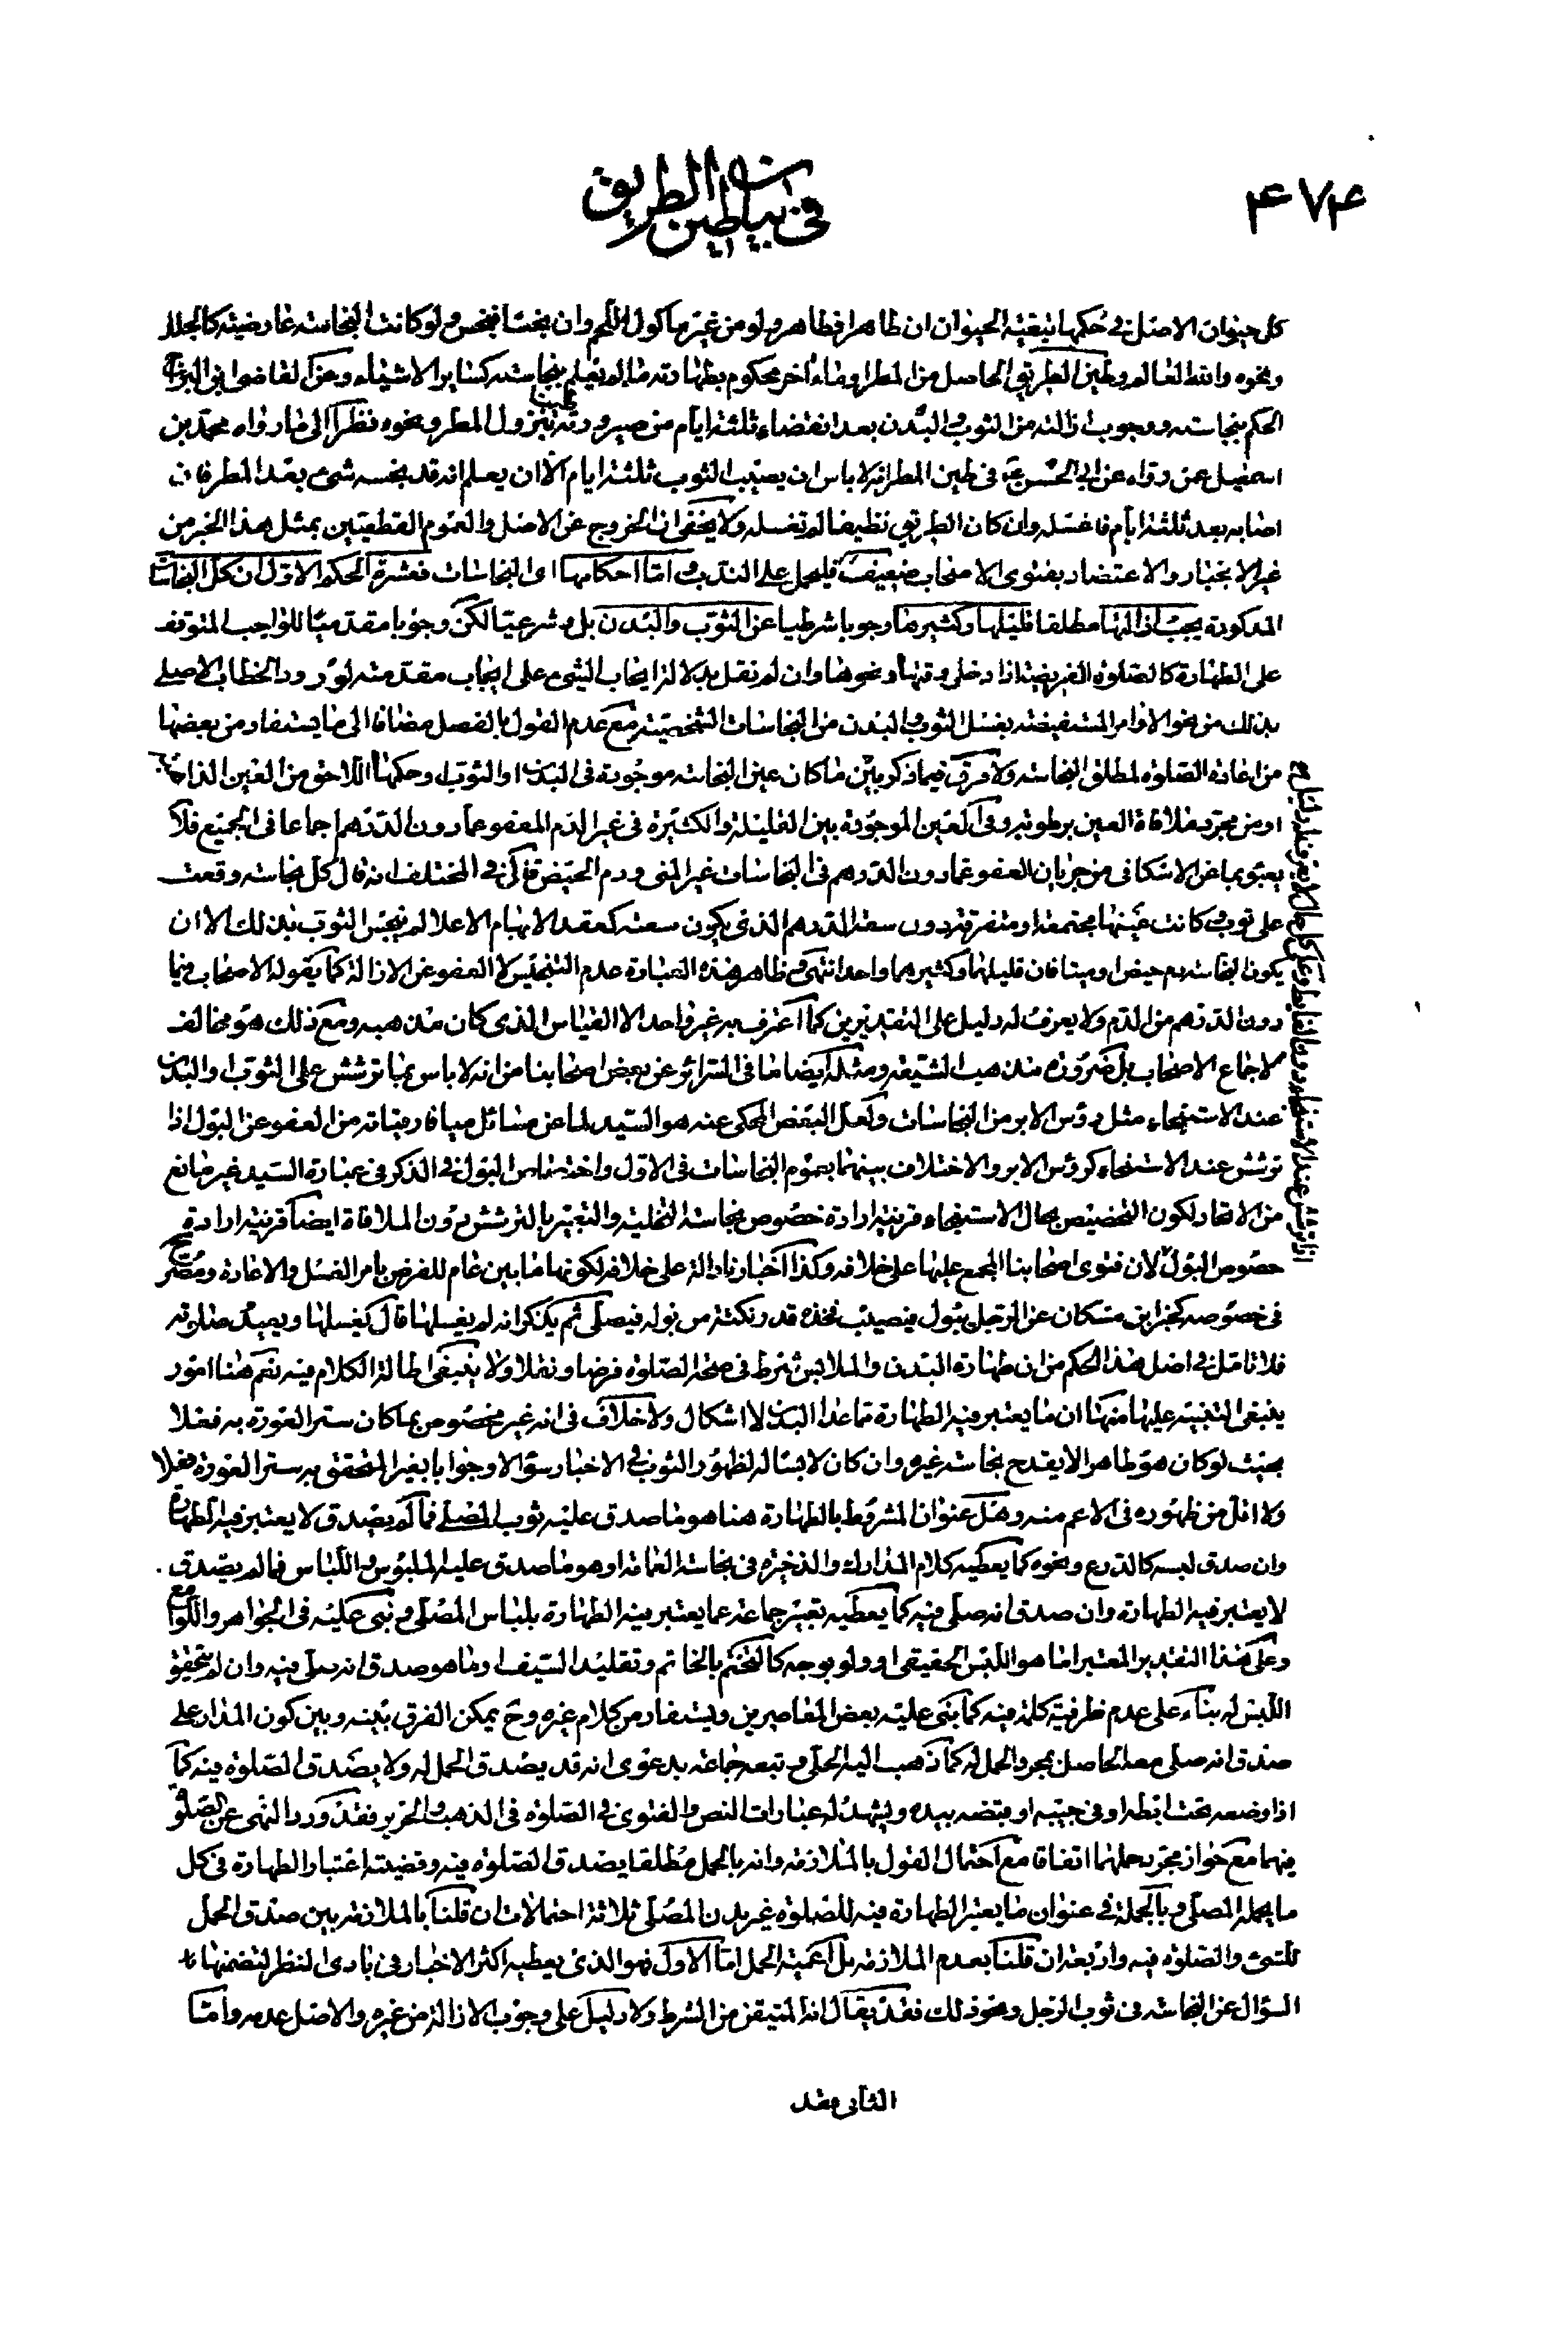 ٤٧٤
في بيان طين الطريق
كل حيوان الاصل في حكمها تبعية الحيوان ان طاهرا فطاهر ولو من غير ماكول اللحم وان نجسا فنجس ولو كانت النجاسة عارضية كالجلل
ونحوه والله العالم وطين الطريق الحاصل من المطر او ماء آخر محكوم بطهارته ما لم يعلم بنجاسته كساير الاشياء وعن القاضي ابن البراج
الحكم بنجاسته ووجوب ازالته من الثوب والبدن بعد انقضاء ثلثة ايام من صيرورته طينا بنزول المطر ونحوه نظرا الى ما رواه محمد بن
اسمعيل عمن رواه عن ابي الحسن ع في طين المطر انه لا باس ان يصيب الثوب ثلثة ايام الا ان يعلم انه قد نجسه شيء بعد المطر فان
اصابه بعد ثلثة ايام فاغسله وان كان الطريق نظيفا لم تغسله ولا يخفى ان الخروج عن الاصل والعموم القطعيين بمثل هذا الخبر من
غير الانجبار والاعتضاد بفتوى الاصحاب ضعيف فليحمل على الندب واما احكامها اي النجاسات فعشرة الحكم الاول ان كل النجاسات
المذكورة يجب ازالتها مطلقا قليلها وكثيرها وجوبا شرطيا عن الثوب والبدن بل وشرعيا لكن وجوبا مقدميا للواجب المتوقف
على الطهارة كالصلوة الفريضة اذا دخل وقتها ونحوها وان لم نقل بدلالة ايجاب الشيء على ايجاب مقدمته لورود الخطاب الاصلي
بذلك من نحو الاوامر المستفيضة بغسل الثوب والبدن من النجاسات الشخصية مع عدم القول بالفصل مضافا الى ما يستفاد من بعضها
من اعادة الصلوة لمطلق النجاسة ولا فرق فيما ذكر بين ما كان عين النجاسة موجودة في البدن او الثوب او حكمها اللاحق من العين الذاهبة
او من مجرد ملاقاة العين برطوبة وفي العين الموجودة بين القليلة والكثيرة في غير الدم المعفو عما دون الدرهم اجماعا في الجميع فلا
يعبؤ بما عن الاسكافي من جريان العفو عما دون الدرهم في النجاسات غير المني ودم الحيض فاكي في المختلف انه قال كل نجاسة وقعت
على ثوب كانت عينها مجتمعة او متفرقة دون سعة الدرهم الذي يكون سعته كعقد الابهام الاعلى لم ينجس الثوب بذلك الا ان
يكون النجاسة دم حيض او منيا فان قليلهما وكثيرهما واحد انتهى وظاهر هذه العبارة عدم التنجيس لا العفو عن الازالة كما يقوله الاصحاب فيما
دون الدرهم من الدم ولا يعرف له دليل على التقديرين كما اعترف به غير واحد الا القياس الذي كان مذهبه ومع ذلك هو مخالف
لاجماع الاصحاب بل ضرورة مذهب الشيعة ومثله ايضا ما في السرائر عن بعض اصحابنا من انه لا باس بما ترشش على الثوب او البدن
عند الاستنجاء مثل رؤس الابر من النجاسات ولعل البعض المحكي عنه هو السيد لما عن مسائل ميافارقياته من العفو عن البول اذا
ترشش عند الاستنجاء كرؤس الابر والاختلاف بينهما بعموم النجاسات في الاول واختصاص البول في الذكر في عبارة السيد غير مانع
من الاتحاد لكون التخصيص بحال الاستنجاء قرينة ارادة خصوص نجاسة التخلية والتعبير بالترشش دون الملاقاة ايضا قرينة ارادة
خصوص البول لان فتوى اصحابنا المجمع عليها على خلافه وكذا اخبارنا دالة على خلافه لكونها ما بين عام للفرض بامر الغسل والاعادة ومصرح
في خصوصه كخبر ابن مسكان عن الرجل يبول فيصيب فخذه قدر نكتة من بوله فيصلي ثم يذكر انه لم يغسلها قال يغسلها ويعيد صلوته
فلا تامل في اصل هذا الحكم من ان طهارة البدن والملابس شرط في صحة الصلوة فرضا ونفلا ولا ينبغي اطالة الكلام فيه نعم هنا امور
ينبغي التنبيه عليها منها ان ما يعتبر فيه الطهارة مما عدا البدن لا اشكال ولا خلاف في انه غير مخصوص بما كان ستر العورة به فعلا
بحيث لو كان هو طاهرا لا يقدح نجاسة غيره وان كان لا يساله لظهور الثوب في الاخبار سؤالا وجوابا بغير المتحقق به ستر العورة فعلا
ولا اقل من ظهوره في الاعم منه وهل عنوان المشروط بالطهارة هنا هو ما صدق عليه ثوب المصلي فما لم يصدق لا يعتبر فيه الطهارة
وان صدق لبسه كالدرع ونحوه كما يعطيه كلام المدارك والذخيرة في نجاسة العمامة او هو ما صدق عليه الملبوس واللباس فما لم يصدق
لا يعتبر فيه الطهارة وان صدق انه صلى فيه كما يعطيه تعبير جماعة عما يعتبر فيه الطهارة بلباس المصلي وبنى عليه في الجواهر واللوامع
وعلى هذا التقدير المعتبر اما هو اللبس الحقيقي او ولو بوجه كالتختم بالخاتم وتقليد السيف او ما هو صدق انه صلى فيه وان لم يتحقق
اللبس له بناء على عدم ظرفية كلمة فيه كما بنى عليه بعض المعاصرين ويستفاد من كلام غيره وح يمكن الفرق بينه وبين كون المدار على
صدق انه صلى معه الحاصل بمجرد الحمل له كما ذهب اليه الحلي وتبعه جماعة بدعوى انه قد يصدق الحمل له ولا يصدق الصلوة فيه كما
اذا وضعه تحت ابطه او في جيبه او قبضه بيده ويشهد له عبارات النص والفتوى في الصلوة في الذهب والحرير فقد ورد النهي عن الصلوة
فيهما مع جواز مجرد حملهما اتفاقا مع احتمال القول بالملازمة وانه بالحمل مطلقا يصدق الصلوة فيه وقضيته اعتبار الطهارة في كل
ما يحمله المصلي وبالجملة في عنوان ما يعتبر الطهارة فيه للصلوة غير بدن المصلي ثلاثة احتمالات ان قلنا بالملازمة بين صدق الحمل
للشيء والصلوة فيه واربعة ان قلنا بعدم الملازمة بل اعمية الحمل اما الاول فهو الذي يعطيه اكثر الاخبار في بادى النظر لتضمنها
السؤال عن النجاسة في ثوب الرجل ونحو ذلك فقد يقال انه المتيقن من الشرط ولا دليل على وجوب الازالة من غيره والاصل عدمه واما
الثاني فقد